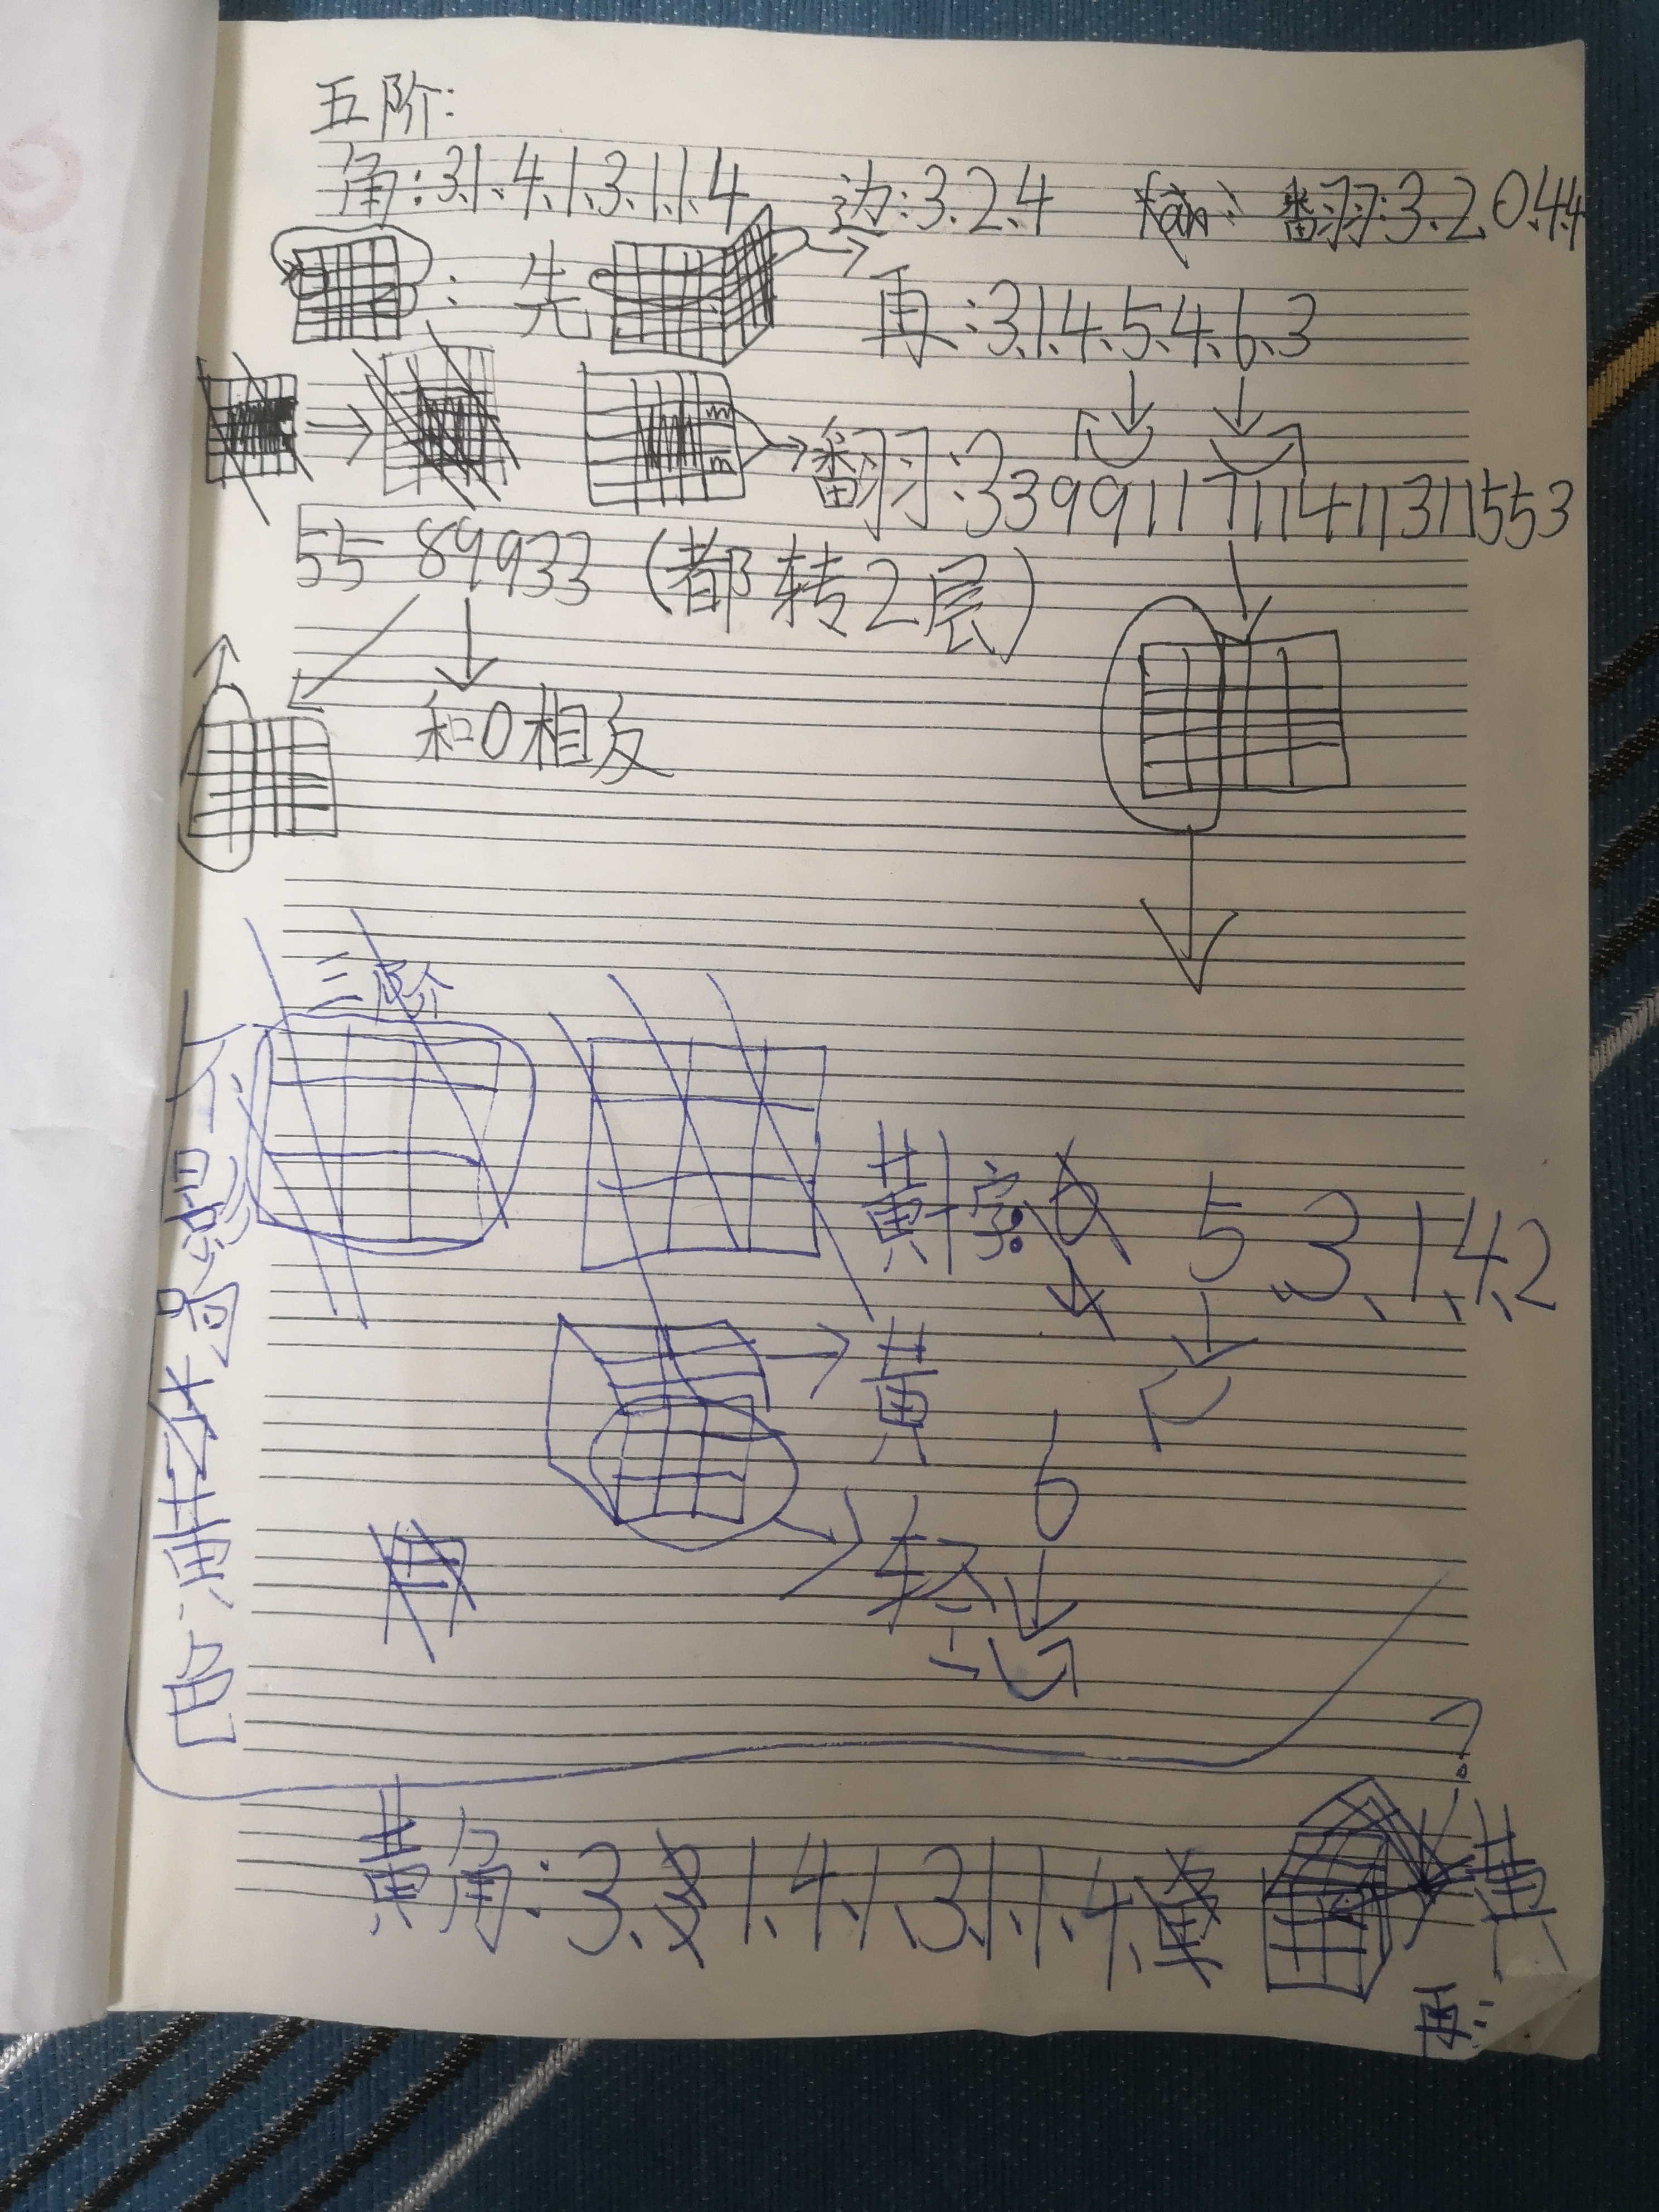 五阶:
角:3.1.4.1.3.1.1.4 边:3.2.4 fan: 翻:3.2.0.4.4
: 先 再:3.1.4.5.4.6.3
翻:3399117111411311553
55 89933 (都转2层)
和0相反
三阶
黄十字: 5.3.1.4.2
黄
6
黄角:3.1.4.1.3.1.1.4. 黄
再: